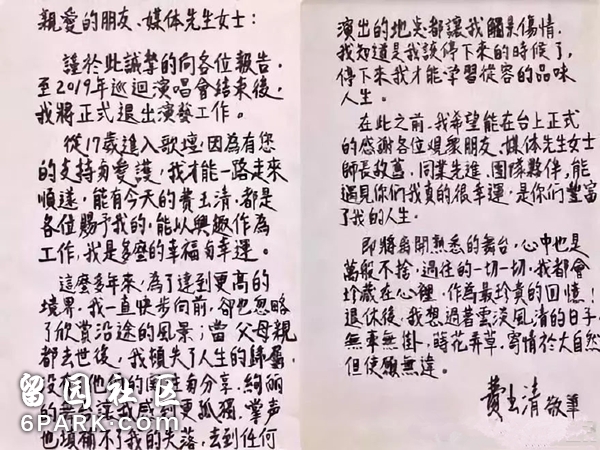 親愛的朋友、媒体先生女士：
謹於此誠摯的向各位報告，
至2019年巡迴演唱會結束後，
我將正式退出演藝工作。
從17歲進入歌壇，因為有您
的支持與愛護，我才能一路走來
順遂，能有今天的費玉清，都是
各位賜予我的，能以興趣作為
工作，我是多麼的幸福與幸運。
這麼多年來，為了達到更高的
境界，我一直快步向前，卻也忽略
了欣賞沿途的風景；當父母親
都去世後，我頓失了人生的歸屬，
沒有了他們的關注與分享，絢麗
的舞台讓我感到更孤獨，掌声
也填補不了我的失落，去到任何
留园社区
6PARK.COM
演出的地点都讓我觸景傷情，
我知道是我該停下來的時候了，
停下來我才能学習從容的品味
人生。
在此之前，我希望能在台上正式
的感谢各位觀衆朋友、媒体先生女士
師長故舊、同業先進、團隊夥伴，能
遇見你們我真的很幸運，是你們豐富
了我的人生。
即將離開熟悉的舞台，心中也是
萬般不捨，過往的一切一切，我都會
珍藏在心裡，作為最珍貴的回憶！
退休後，我想過著雲淡風清的日子，
無牽無掛，時花弄草，寄情於大自然
但使願無違。
費玉清 敬筆